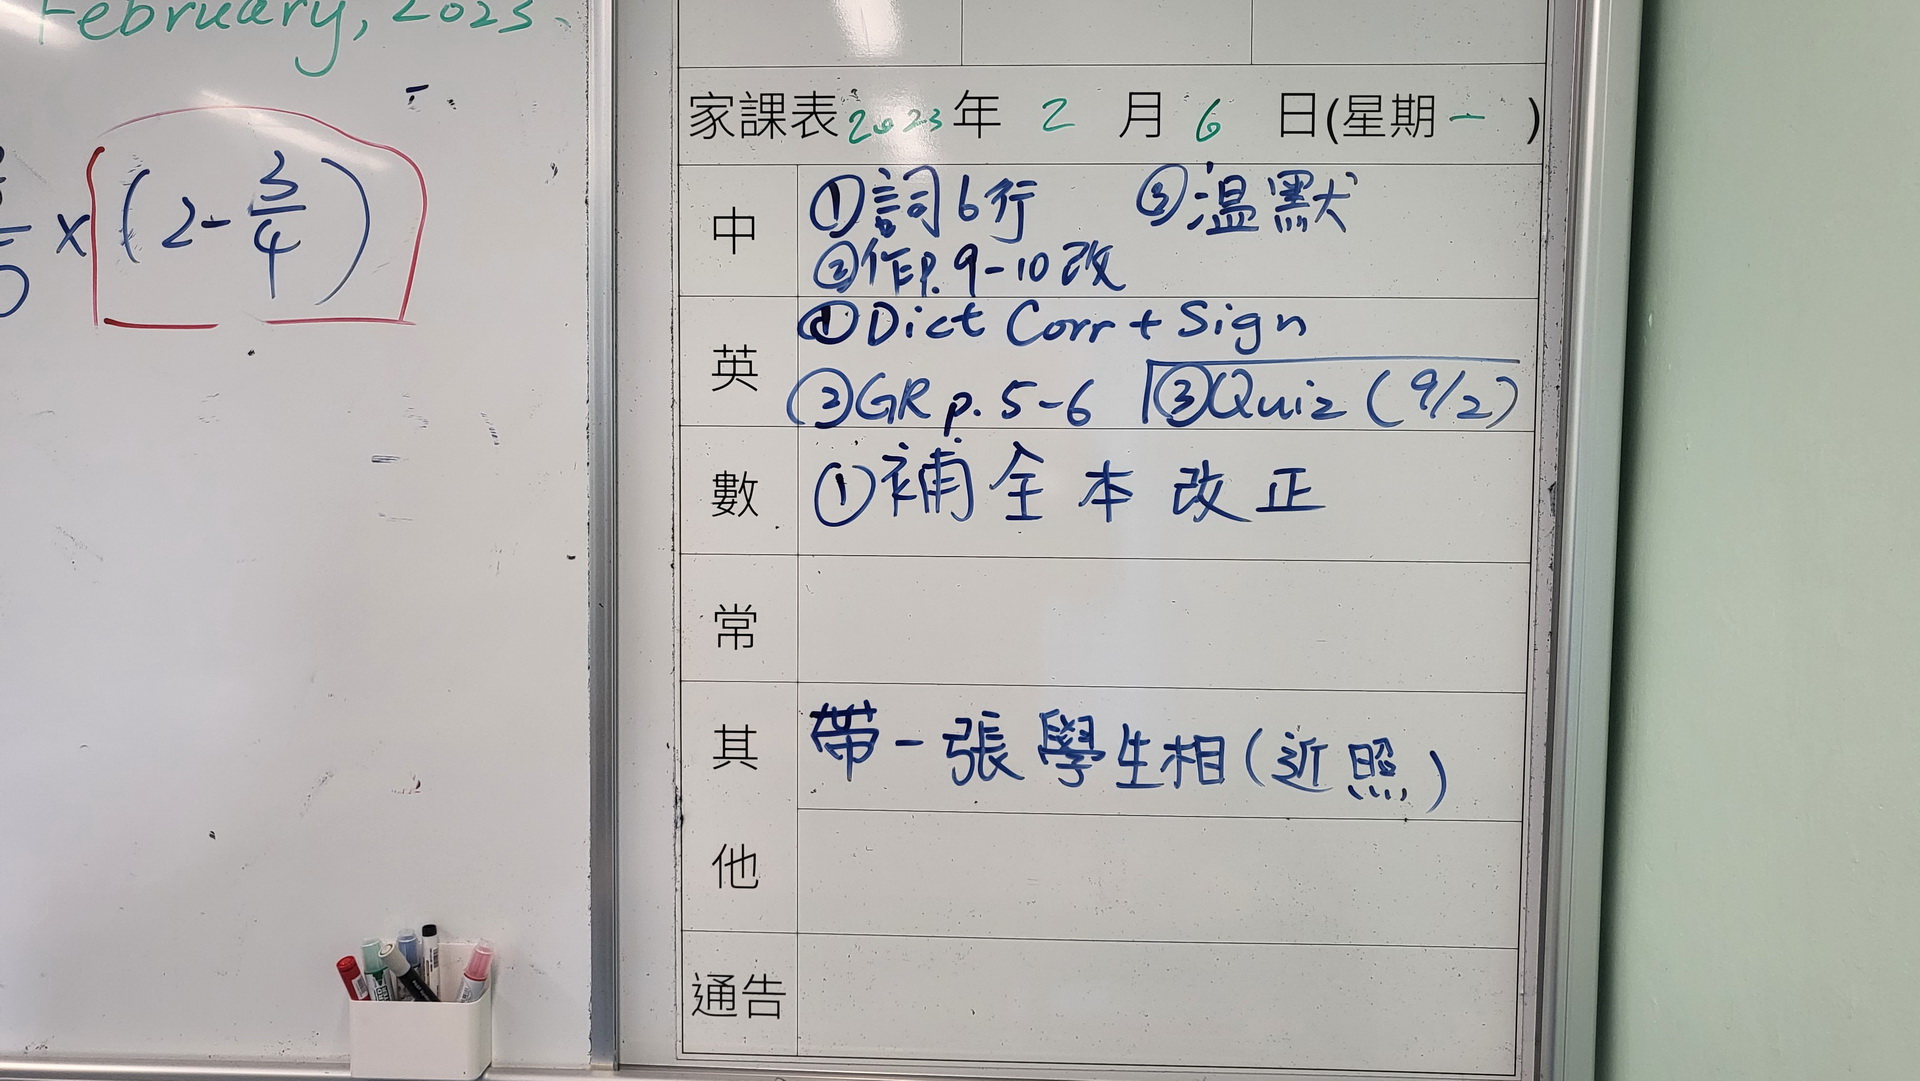 February, 2023.
× (2-3/4)
家課表2023年 2 月 6 日(星期一)
中
①詞6行 ③溫默
②作P.9-10改
英
①Dict Corr + Sign
②GR p. 5-6 ③Quiz (9/2)
數
①補全本改正
常
其他
帶一張學生相(近照)
通告